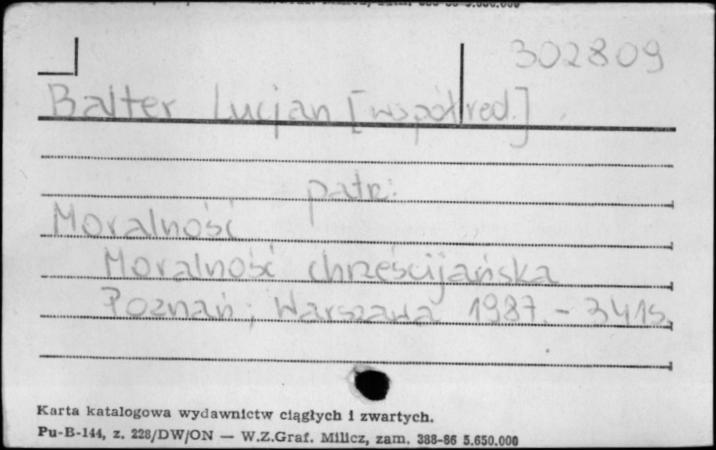 302809
Balter Lucjan [współred.]
patrz:
Moralność
Moralność chrześcijańska
Poznań; Warszawa 1987. - 341s.
Karta katalogowa wydawnictw ciągłych i zwartych.
Pu-B-144, z. 228/DW/ON — W.Z.Graf. Milicz, zam. 388-86 5.650.000